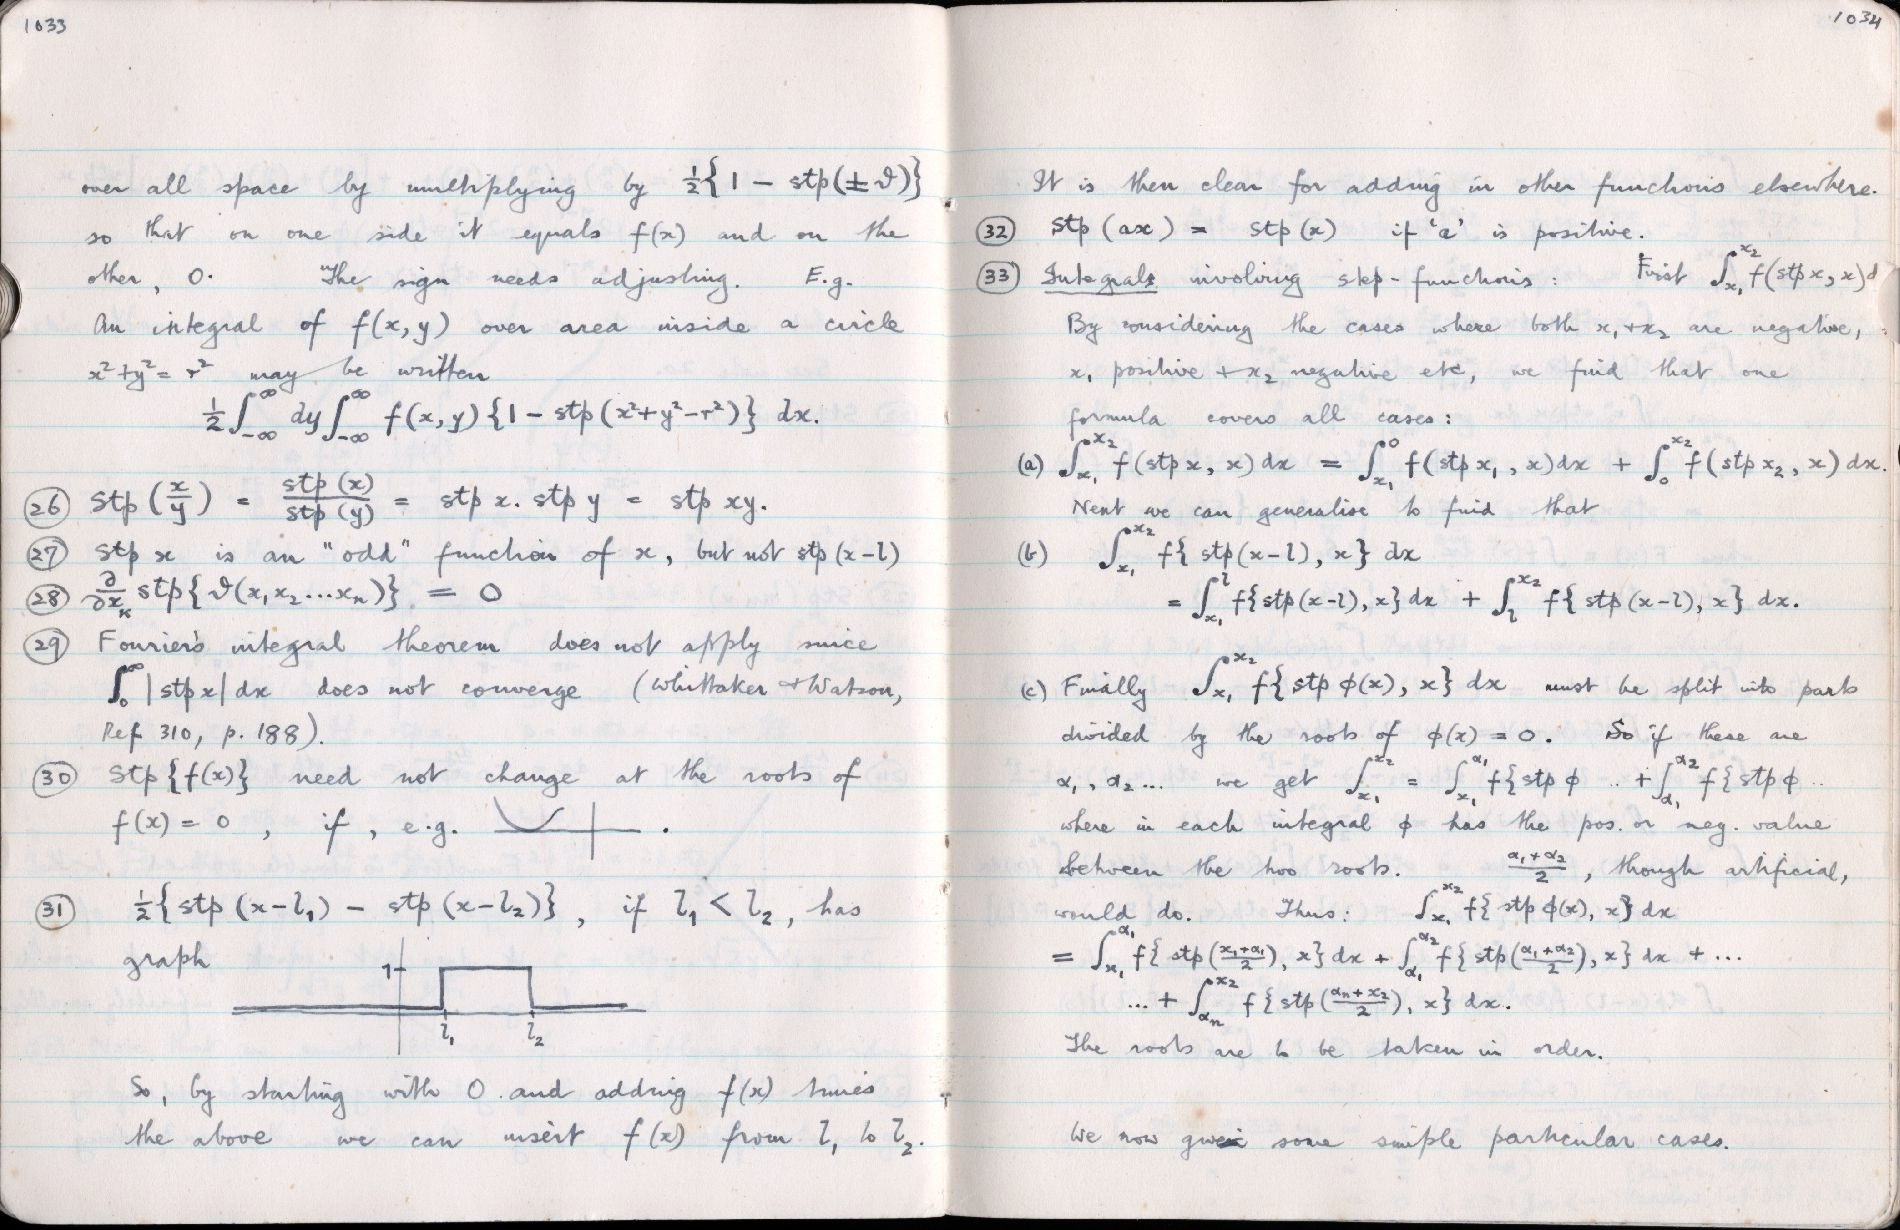 1033
over all space by multiplying by ½{1 − stp(±ϑ)}
so that on one side it equals f(x) and on the
other, 0. The sign needs adjusting. E.g.
An integral of f(x,y) over area inside a circle
x²+y²= r² may be written
½∫₋∞^∞ dy∫₋∞^∞ f(x,y){1 − stp(x²+y²−r²)} dx.
(26) stp(x/y) = stp(x)/stp(y) = stp x. stp y = stp xy.
(27) stp x is an "odd" function of x, but not stp(x−l)
(28) ∂/∂xₖ stp{ϑ(x₁x₂...xₙ)} = 0
(29) Fourier's integral theorem does not apply since
∫₀^∞ |stp x| dx does not converge (Whittaker + Watson,
Ref 310, p. 188).
(30) Stp{f(x)} need not change at the roots of
f(x) = 0, if, e.g. .
(31) ½{stp(x−l₁) − stp(x−l₂)}, if l₁ < l₂, has
graph
1
l₁ l₂
So, by starting with 0 and adding f(x) times
the above we can insert f(x) from l₁ to l₂.
1034
It is then clear for adding in other functions elsewhere.
(32) stp(ax) = stp(x) if 'a' is positive.
(33) Integrals involving step-functions: First ∫ₓ₁^x₂ f(stp x, x)d
By considering the cases where both x₁+x₂ are negative,
x₁ positive + x₂ negative etc, we find that one
formula covers all cases:
(a) ∫ₓ₁^x₂ f(stp x, x)dx = ∫ₓ₁^0 f(stp x₁, x)dx + ∫₀^x₂ f(stp x₂, x)dx.
Next we can generalise to find that
(b) ∫ₓ₁^x₂ f{stp(x−l), x} dx
= ∫ₓ₁^l f{stp(x−l), x}dx + ∫ₗ^x₂ f{stp(x−l), x} dx.
(c) Finally ∫ₓ₁^x₂ f{stp ϕ(x), x} dx must be split into parts
divided by the roots of ϕ(x) = 0. So if these are
α₁, α₂... we get ∫ₓ₁^x₂ = ∫ₓ₁^α₁ f{stp ϕ .. + ∫α₁^α₂ f{stp ϕ ..
where in each integral ϕ has the pos. or neg. value
between the two roots. (α₁+α₂)/2, though artificial,
would do. Thus: ∫ₓ₁^x₂ f{stp ϕ(x), x}dx
= ∫ₓ₁^α₁ f{stp((x₁+α₁)/2), x}dx + ∫α₁^α₂ f{stp((α₁+α₂)/2), x} dx + ...
... + ∫αₙ^x₂ f{stp((αₙ+x₂)/2), x} dx.
The roots are to be taken in order.
We now give some simple particular cases.